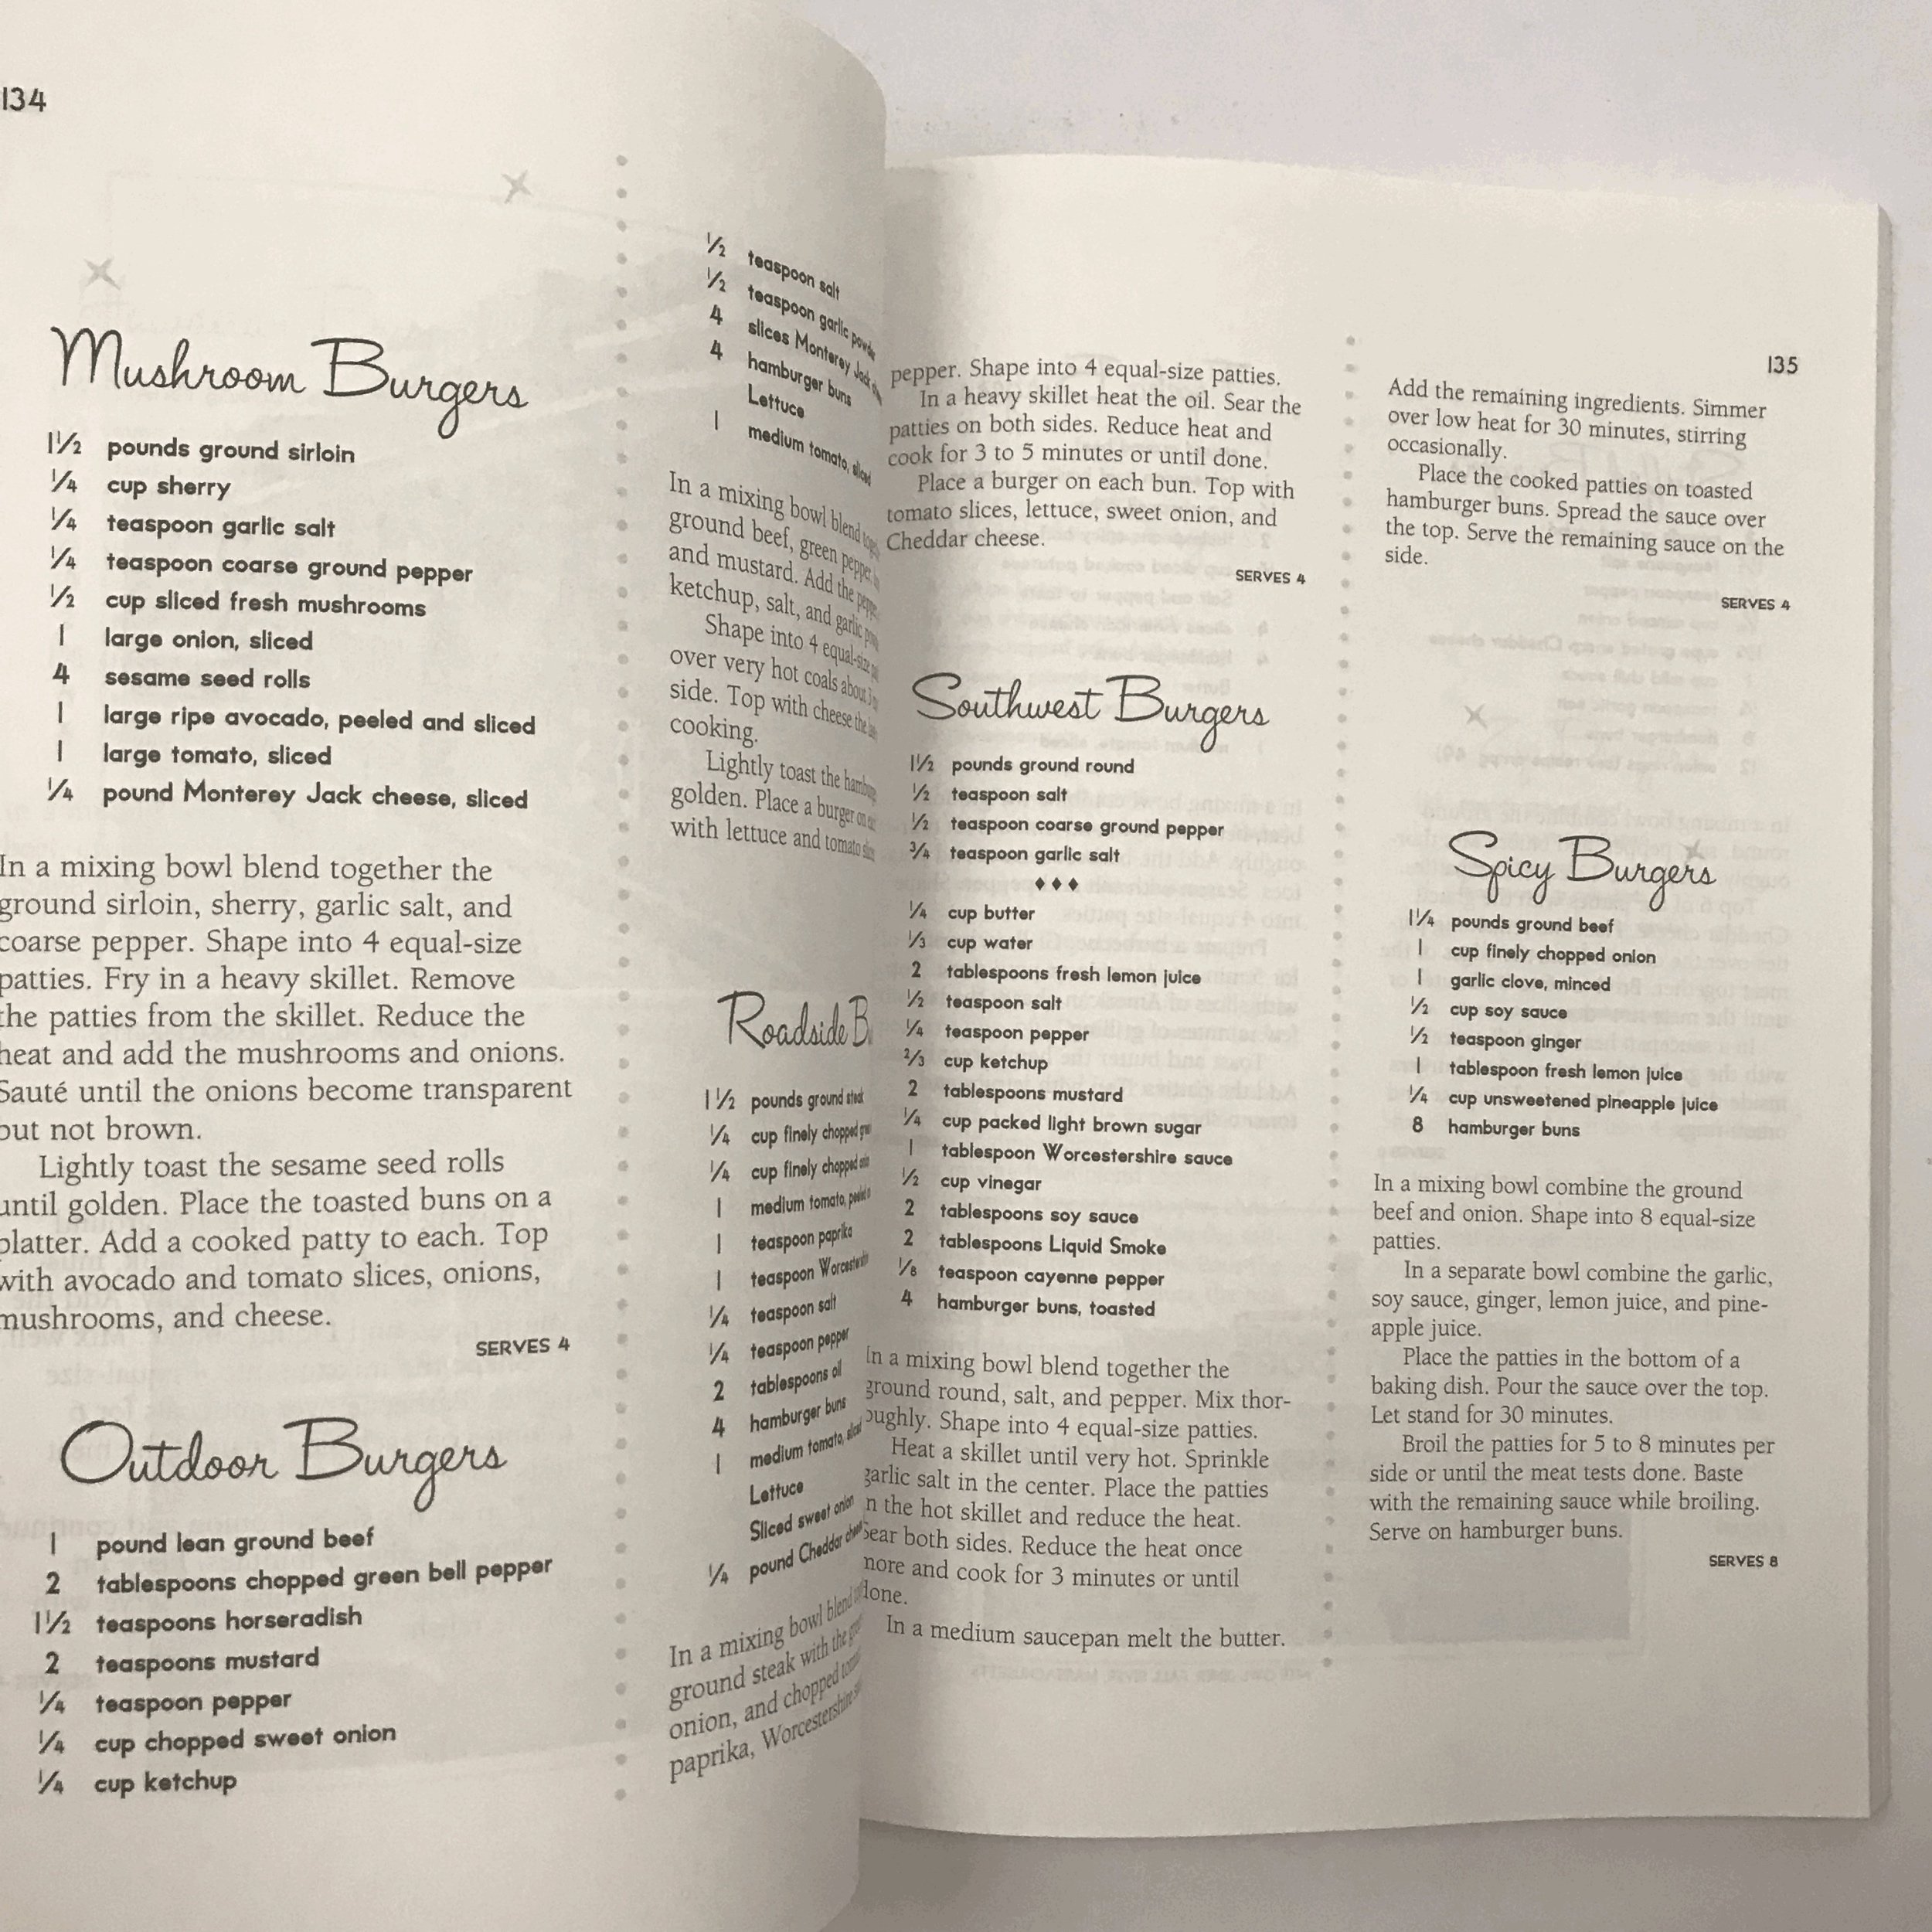 134
Mushroom Burgers
1½ pounds ground sirloin
¼ cup sherry
¼ teaspoon garlic salt
¼ teaspoon coarse ground pepper
½ cup sliced fresh mushrooms
1 large onion, sliced
4 sesame seed rolls
1 large ripe avocado, peeled and sliced
1 large tomato, sliced
¼ pound Monterey Jack cheese, sliced
In a mixing bowl blend together the
ground sirloin, sherry, garlic salt, and
coarse pepper. Shape into 4 equal-size
patties. Fry in a heavy skillet. Remove
the patties from the skillet. Reduce the
heat and add the mushrooms and onions.
Sauté until the onions become transparent
but not brown.
Lightly toast the sesame seed rolls
until golden. Place the toasted buns on a
platter. Add a cooked patty to each. Top
with avocado and tomato slices, onions,
mushrooms, and cheese.
SERVES 4
Outdoor Burgers
1 pound lean ground beef
2 tablespoons chopped green bell pepper
1½ teaspoons horseradish
2 teaspoons mustard
¼ teaspoon pepper
¼ cup chopped sweet onion
¼ cup ketchup
½ teaspoon salt
½ teaspoon garlic powder
4 slices Monterey Jack
4 hamburger buns
Lettuce
1 medium tomato, sliced
In a mixing bowl blend
ground beef, green pepper,
and mustard. Add the
ketchup, salt, and garlic
Shape into 4 equal-size
over very hot coals about
side. Top with cheese the
cooking.
Lightly toast the
golden. Place a burger on
with lettuce and tomato
Roadside B
1½ pounds ground steak
¼ cup finely chopped
¼ cup finely chopped
1 medium tomato,
1 teaspoon paprika
1 teaspoon
¼ teaspoon salt
¼ teaspoon pepper
2 tablespoons oil
4 hamburger buns
1 medium tomato, sliced
Lettuce
Sliced sweet onion
¼ pound Cheddar
In a mixing bowl blend
ground steak with the
onion, and chopped
paprika, Worcestershire
135
pepper. Shape into 4 equal-size patties.
In a heavy skillet heat the oil. Sear the
patties on both sides. Reduce heat and
cook for 3 to 5 minutes or until done.
Place a burger on each bun. Top with
tomato slices, lettuce, sweet onion, and
Cheddar cheese.
SERVES 4
Southwest Burgers
1½ pounds ground round
½ teaspoon salt
½ teaspoon coarse ground pepper
¾ teaspoon garlic salt
♦♦♦
¼ cup butter
⅓ cup water
2 tablespoons fresh lemon juice
½ teaspoon salt
¼ teaspoon pepper
⅔ cup ketchup
2 tablespoons mustard
¼ cup packed light brown sugar
1 tablespoon Worcestershire sauce
½ cup vinegar
2 tablespoons soy sauce
2 tablespoons Liquid Smoke
⅛ teaspoon cayenne pepper
4 hamburger buns, toasted
In a mixing bowl blend together the
ground round, salt, and pepper. Mix thor-
oughly. Shape into 4 equal-size patties.
Heat a skillet until very hot. Sprinkle
garlic salt in the center. Place the patties
in the hot skillet and reduce the heat.
Sear both sides. Reduce the heat once
more and cook for 3 minutes or until
done.
In a medium saucepan melt the butter.
Add the remaining ingredients. Simmer
over low heat for 30 minutes, stirring
occasionally.
Place the cooked patties on toasted
hamburger buns. Spread the sauce over
the top. Serve the remaining sauce on the
side.
SERVES 4
Spicy Burgers
1¼ pounds ground beef
1 cup finely chopped onion
1 garlic clove, minced
½ cup soy sauce
½ teaspoon ginger
1 tablespoon fresh lemon juice
¼ cup unsweetened pineapple juice
8 hamburger buns
In a mixing bowl combine the ground
beef and onion. Shape into 8 equal-size
patties.
In a separate bowl combine the garlic,
soy sauce, ginger, lemon juice, and pine-
apple juice.
Place the patties in the bottom of a
baking dish. Pour the sauce over the top.
Let stand for 30 minutes.
Broil the patties for 5 to 8 minutes per
side or until the meat tests done. Baste
with the remaining sauce while broiling.
Serve on hamburger buns.
SERVES 8